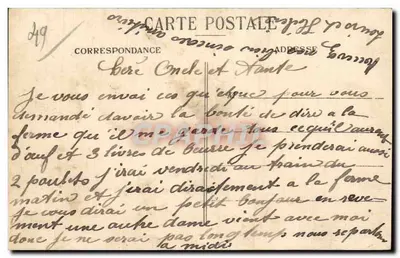 49
CARTE POSTALE
CORRESPONDANCE
ADRESSE
Chère Oncle et Tante
Je vous envoi ces quelque pour vous
demandé d'avoir la bonté de dire a la
ferme qu'il me garde tous ce qu'il auront
d'œuf et 3 livres de beurre je prenderai aussi
2 poulets j'irai vendredi au train du
matin et j'irai diraitement a la ferme
je vous dirai un petit bonjour en reve
ment une autre dame vient avec moi
donc je ne serai pas longtemp nous repartons
a midi